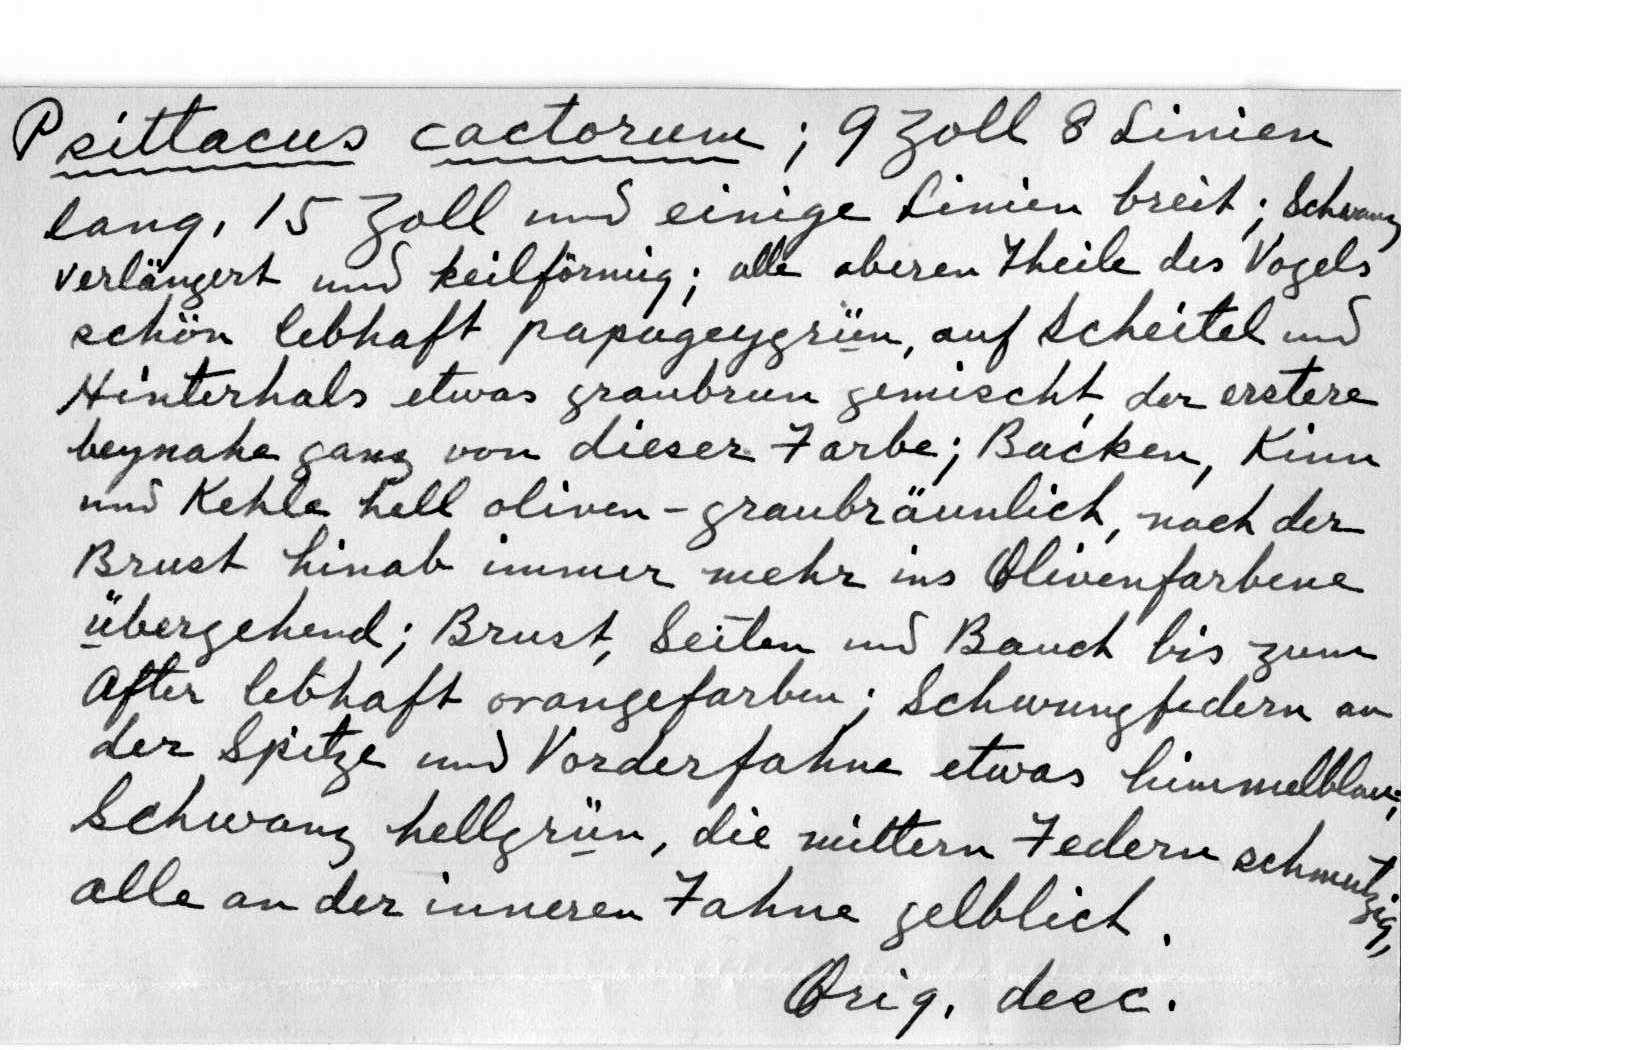 Psittacus cactorum; 9 Zoll 8 Linien
lang, 15 Zoll und einige Linien breit; Schwanz
verlängert und keilförmig; alle oberen Theile des Vogels
schön lebhaft papageygrün, auf Scheitel und
Hinterhals etwas graubrun gemischt, der erstere
beynahe ganz von dieser Farbe; Backen, Kinn
und Kehle hell oliven-graubräunlich, nach der
Brust hinab immer mehr ins Olivenfarbene
übergehend; Brust, Seiten und Bauch bis zum
After lebhaft orangefarben; Schwungfedern an
der Spitze und Vorderfahne etwas himmelblau;
Schwanz hellgrün, die mittern Federn schmutzig,
alle an der inneren Fahne gelblich.
Orig. desc.